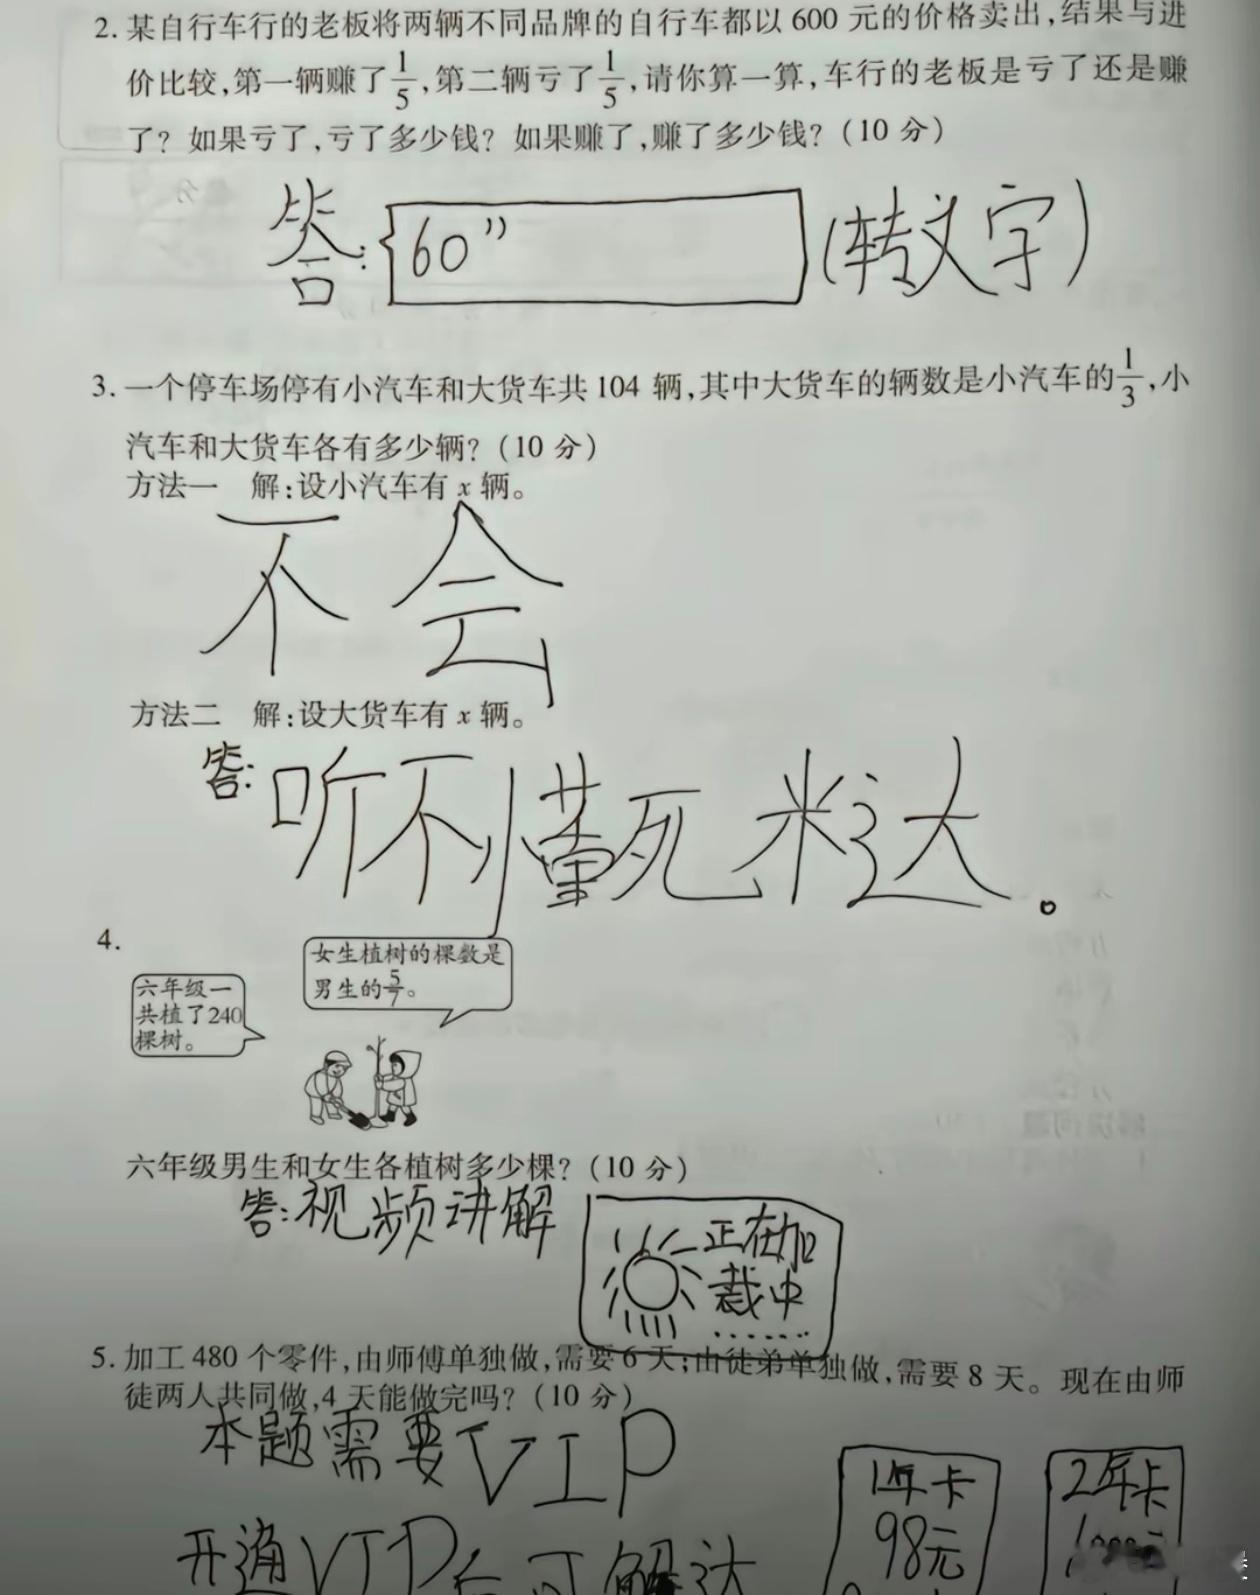 2. 某自行车行的老板将两辆不同品牌的自行车都以 600 元的价格卖出,结果与进
价比较,第一辆赚了1/5,第二辆亏了1/5,请你算一算,车行的老板是亏了还是赚
了? 如果亏了,亏了多少钱? 如果赚了,赚了多少钱? (10 分)
答: 60” (转文字)
3. 一个停车场停有小汽车和大货车共 104 辆,其中大货车的辆数是小汽车的1/3,小
汽车和大货车各有多少辆? (10 分)
方法一 解:设小汽车有 x 辆。
不会
方法二 解:设大货车有 x 辆。
答: 听不懂死米达。
4.
女生植树的棵数是
男生的5/7。
六年级一
共植了240
棵树。
六年级男生和女生各植树多少棵? (10 分)
答: 视频讲解
正在加
载中
......
5. 加工 480 个零件,由师傅单独做,需要 6 天;由徒弟单独做,需要 8 天。现在由师
徒两人共同做,4 天能做完吗? (10 分)
本题需要VIP
1年卡
98元
2年卡
开通VIP后可解